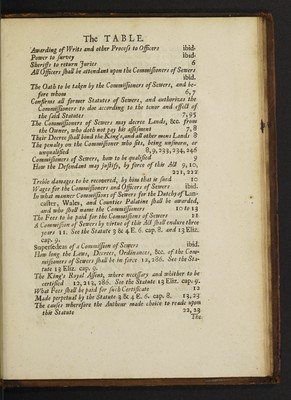 The TABLE.
Awarding of Writs and other Process to Officers ibid.
Power to survey ibid.
Sheriffs to return Juries 6
All Officers shall be attendant upon the Commissioners of Sewers
ibid.
The Oath to be taken by the Commissioners of Sewers, and be-
fore whom 6, 7
Confirms all former Statutes of Sewers, and authorizes the
Commissioners to doe according to the tenor and effect of
the said Statutes 7, 95
The Commissioners of Sewers may decree Lands, &c. from
the Owner, who doth not pay his assessment 7, 8
Their Decree shall bind the King's, and all other mens Lands 8
The penalty on the Commissioner who sits, being unsworn, or
unqualified 8, 9, 233, 234, 246
Commissioners of Sewers, how to be qualified 9
How the Defendant may justify, by force of this Act 9, 10,
221, 222
Treble damages to be recovered, by him that is sued 10
Wages for the Commissioners and Officers of Sewers ibid.
In what manner Commissions of Sewers for the Dutchy of Lan-
caster, Wales, and Counties Palatine shall be awarded,
and who shall name the Commissioners 10 to 12
The Fees to be paid for the Commissions of Sewers 11
A Commission of Sewers by virtue of this Act shall endure three
years 11. See the Statute 3 & 4 E. 6. cap. 8. and 13 Eliz.
cap. 9.
Supersedeas of a Commission of Sewers ibid.
How long the Laws, Decrees, Ordinances, &c. of the Com-
missioners of Sewers shall be in force 12, 286. See the Sta-
tute 13 Eliz. cap. 9.
The King's Royal Assent, where necessary and whither to be
certified 12, 213, 286. See the Statute 13 Eliz. cap. 9.
What Fees shall be paid for such Certificate 12
Made perpetual by the Statute 3 & 4 E. 6. cap. 8. 13, 23
The causes wherefore the Authour made choice to reade upon
this Statute 22, 23
The